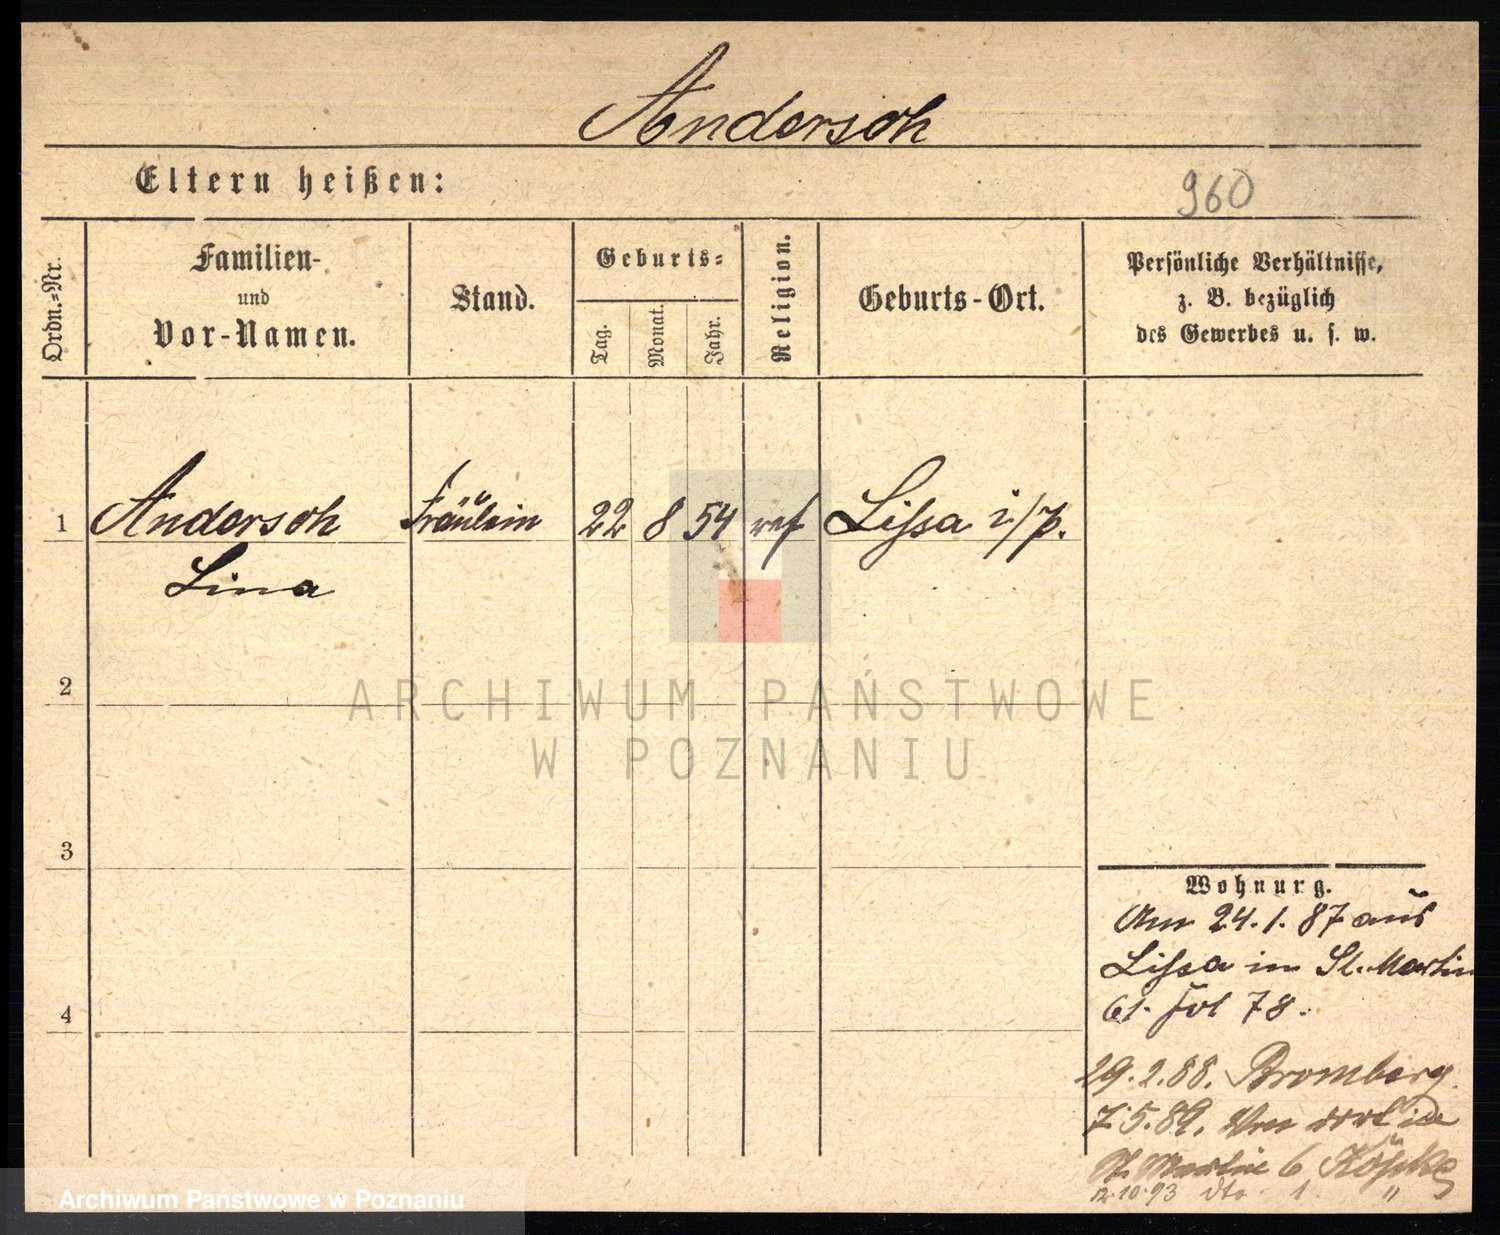 Andersch
Eltern heißen:
960
Ordn.-Nr.
Familien-
und
Vor-Namen.
Stand.
Geburts-
Tag.
Monat.
Jahr.
Religion.
Geburts-Ort.
Persönliche Verhältnisse,
z. B. bezüglich
des Gewerbes u. s. w.
1 Andersch Fräulein 22 8 54 ref Lissa i/P.
Lina
2
ARCHIWUM PAŃSTWOWE
W POZNANIU
3
Wohnung.
Am 24.1.87 aus
Lissa in St. Martin
61.  78.
4
29.2.88. Bromberg
7.5.89. Von dort in
St. Martin 6 Köpke
12.10.93 dto 1 "
Archiwum Państwowe w Poznaniu